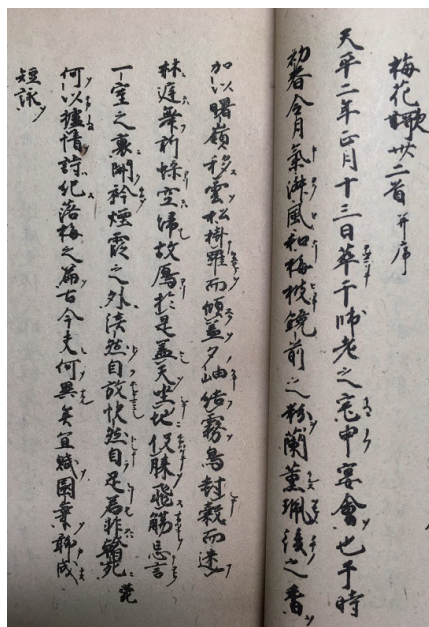 梅花歌卅二首 并序
天平二年正月十三日萃于帥老之宅申宴會也于時
初春令月氣淑風和梅披鏡前之粉蘭薫珮後之香
加以曙嶺移雲松掛羅而傾盖夕岫結霧鳥封縠而迷
林庭舞新蝶空帰故鴈於是盖天坐地促膝飛觴忘言
一室之裏開衿煙霞之外淡然自放快然自足若非翰苑
何以攄情詩紀落梅之篇古今夫何異矣宜賦園梅聊成
短詠